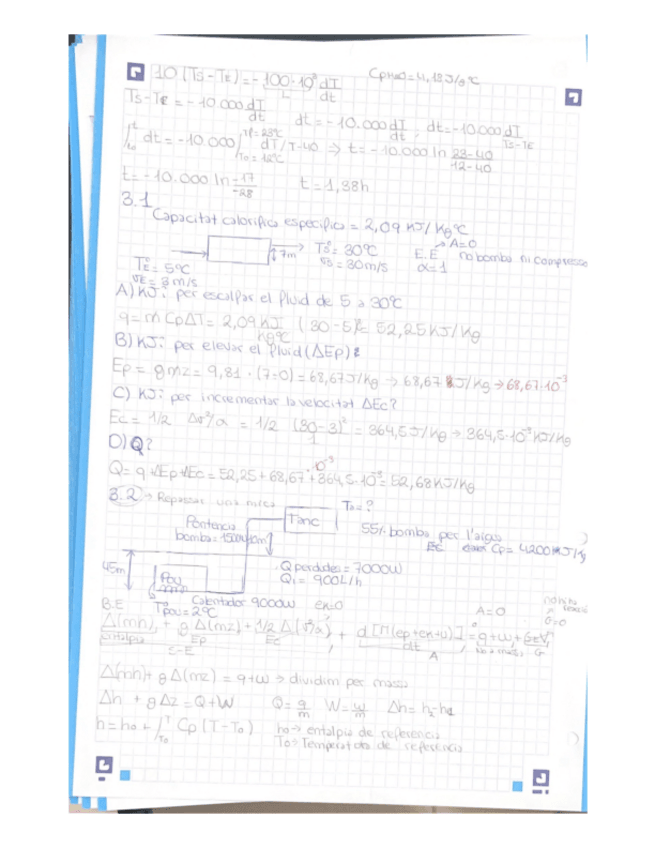 10 (Ts - TE) = - 100·10³ dT/dt CpH2O = 4,18 J/g°C
Ts - TE = - 10.000 dT/dt
dt = - 10.000 dT, dt = -10.000 dT/Ts-TE
∫ dt = -10.000 ∫ dT/T-40 ⇒ t = -10.000 ln 23-40/12-40
t0 T0 = 12°C
t = -10.000 ln -17/-28 t = 1,38h
3.1
Capacitat calorifica especifica = 2,09 KJ/Kg°C
Ts = 30°C
vs = 30m/s
7m
E.E → A=0 no bomba ni
α=1
TE = 5°C
vE = 3 m/s
A) KJ? per escalfar el fluid de 5 a 30°C
q = m Cp ΔT = 2,09 KJ/Kg°C (30-5)°C = 52,25 KJ/Kg
B) KJ? per elevar el fluid (ΔEp)?
Ep = gmz = 9,81 · (7-0) = 68,67 J/Kg → 68,67 J/Kg → 68,67·10⁻³
C) KJ? per incrementar la velocitat ΔEc?
Ec = 1/2 Δv²/α = 1/2 (30-3)²/1 = 364,5 J/Kg → 364,5·10⁻³ KJ/Kg
D) Q?
Q = q + ΔEp + ΔEc = 52,25 + 68,67·10⁻³ + 364,5·10⁻³ = 52,68 KJ/Kg
3.2 → Repassar una mica
T2 = ?
Tanc
Potencia
bomba = 1500W
55% bomba per l'aigua
Cp = 4200
45m
Q perdudes = 7000W
Q1 = 900L/h
Pou
Calentador 9000W en=0
Tpou = 2°C
B.E
A=0
G=0
Δ(mh) + gΔ(mz) + 1/2 Δ(v²/α) + d[M(ep+en+u)]/dt = q + w + GeV
entalpia Ep Ec
A G
Δ(mh) + gΔ(mz) = q + w → dividim per massa
Δh + gΔz = Q + W Q = q/m W = w/m Δh = h2-h1
h = h0 + ∫ Cp (T - T0) h0 → entalpia de referencia
T0 → Temperatura de referencia